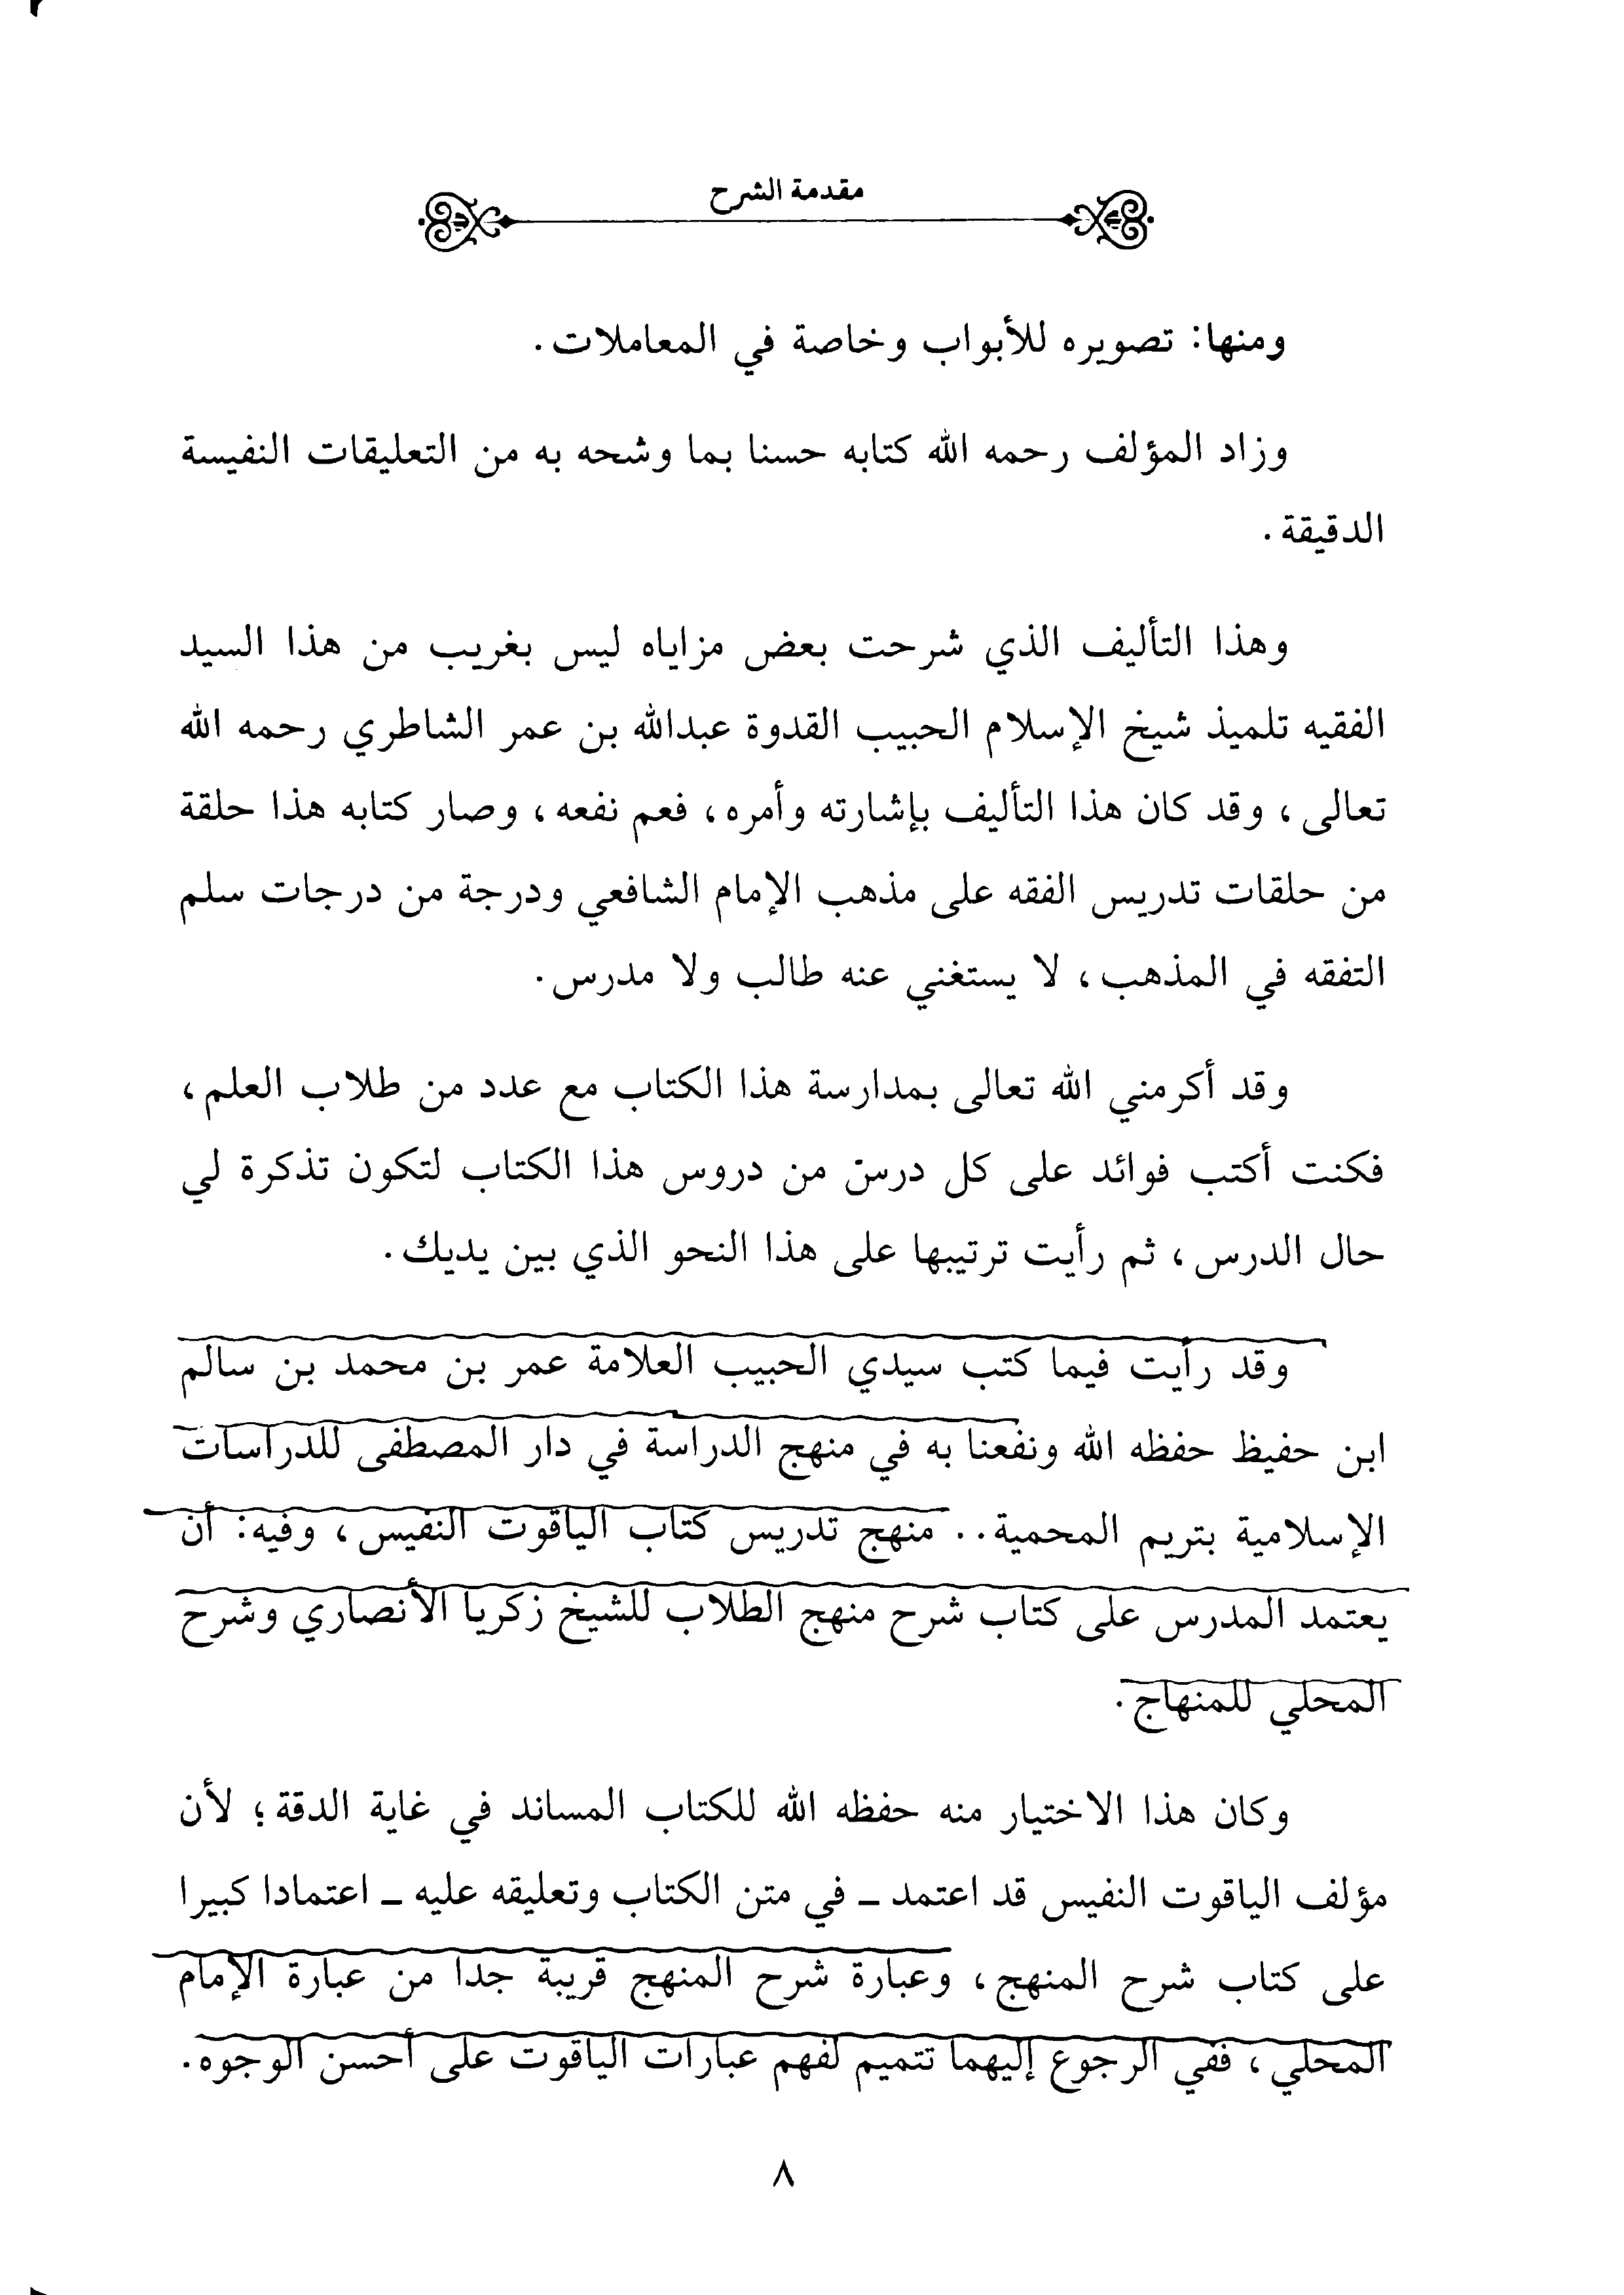 مقدمة الشرح
ومنها: تصويره للأبواب وخاصة في المعاملات.
وزاد المؤلف رحمه الله كتابه حسنا بما وشحه به من التعليقات النفيسة
الدقيقة.
وهذا التأليف الذي شرحت بعض مزاياه ليس بغريب من هذا السيد
الفقيه تلميذ شيخ الإسلام الحبيب القدوة عبدالله بن عمر الشاطري رحمه الله
تعالى، وقد كان هذا التأليف بإشارته وأمره، فعم نفعه، وصار كتابه هذا حلقة
من حلقات تدريس الفقه على مذهب الإمام الشافعي ودرجة من درجات سلم
التفقه في المذهب، لا يستغني عنه طالب ولا مدرس.
وقد أكرمني الله تعالى بمدارسة هذا الكتاب مع عدد من طلاب العلم،
فكنت أكتب فوائد على كل درس من دروس هذا الكتاب لتكون تذكرة لي
حال الدرس، ثم رأيت ترتيبها على هذا النحو الذي بين يديك.
وقد رأيت فيما كتب سيدي الحبيب العلامة عمر بن محمد بن سالم
ابن حفيظ حفظه الله ونفعنا به في منهج الدراسة في دار المصطفى للدراسات
الإسلامية بتريم المحمية.. منهج تدريس كتاب الياقوت النفيس، وفيه: أن
يعتمد المدرس على كتاب شرح منهج الطلاب للشيخ زكريا الأنصاري وشرح
المحلي للمنهاج.
وكان هذا الاختيار منه حفظه الله للكتاب المساند في غاية الدقة؛ لأن
مؤلف الياقوت النفيس قد اعتمد ـ في متن الكتاب وتعليقه عليه ـ اعتمادا كبيرا
على كتاب شرح المنهج، وعبارة شرح المنهج قريبة جدا من عبارة الإمام
المحلي، ففي الرجوع إليهما تتميم لفهم عبارات الياقوت على أحسن الوجوه.
٨